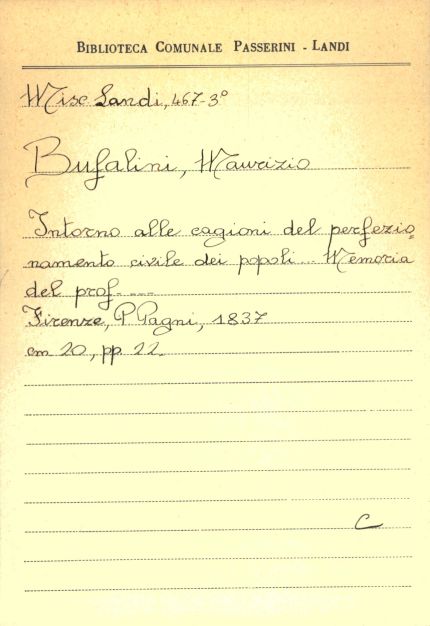 BIBLIOTECA COMUNALE PASSERINI - LANDI
Misc Landi, 467-3°
Bufalini, Maurizio
Intorno alle cagioni del perfezio=
namento civile dei popoli ... Memoria
del prof. ....
Firenze, P. Pagni, 1837
cm 20, pp 22.
C